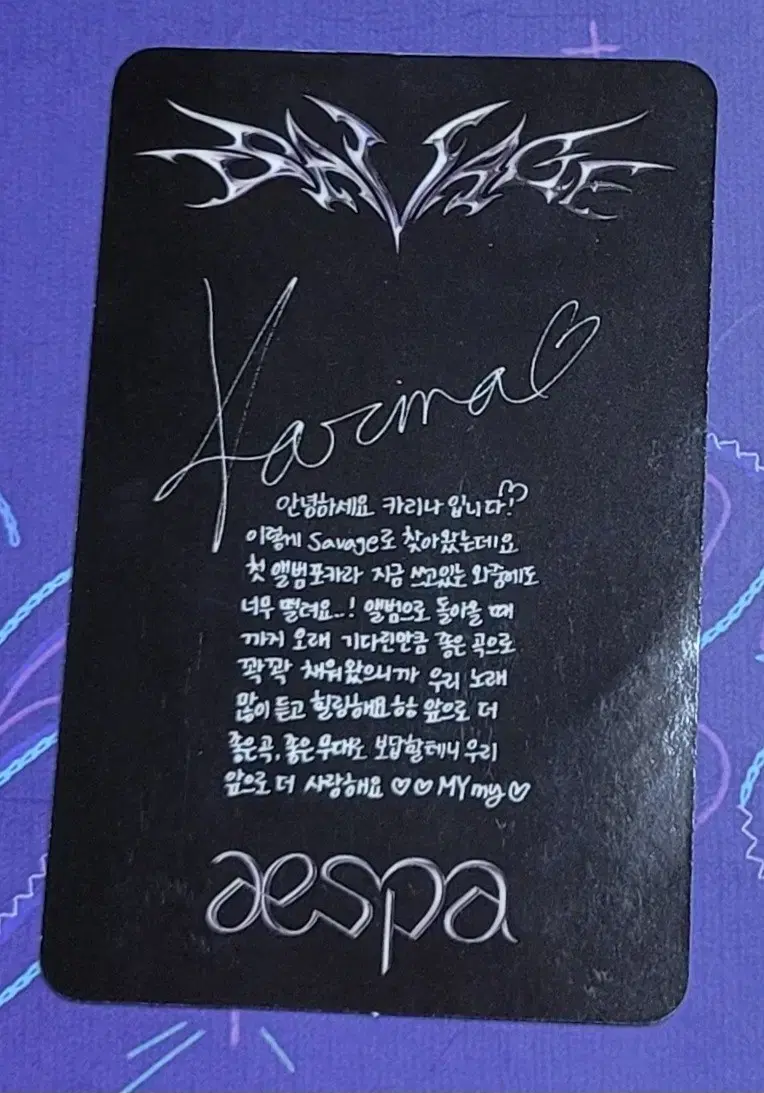 SAVAGE
Karina♡
안녕하세요 카리나입니다!♡
이렇게 Savage로 찾아왔는데요
첫 앨범포카라 지금 쓰고있는 와중에도
너무 떨려요..! 앨범으로 돌아올 때
까지 오래 기다린만큼 좋은 곡으로
꽉꽉 채워왔으니까 우리 노래
많이 듣고 힐링해요ㅎㅎ 앞으로 더
좋은곡, 좋은무대로 보답할테니 우리
앞으로 더 사랑해요 ♡♡ MY my♡
aespa